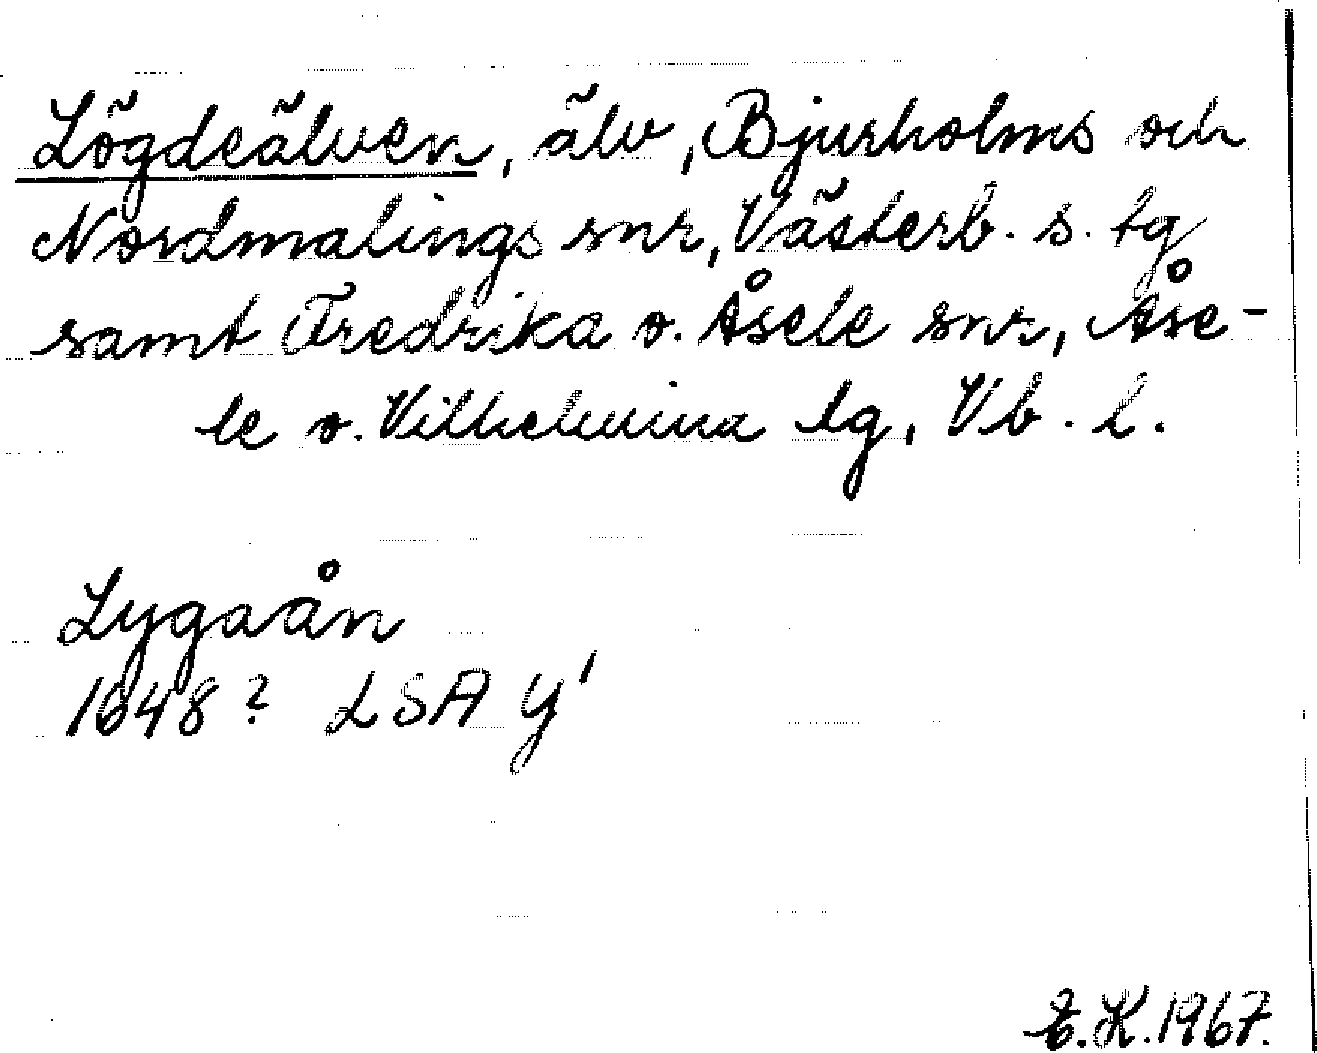 Lögdeälven, älv, Bjurholms och
Nordmalings snr, Västerb. s. tg
samt Fredrika o. Åsele snr, Åse-
le o. Vilhelmina lg, Vb. l.
Lygaån
1648? LSA Y1
E.K.1967.